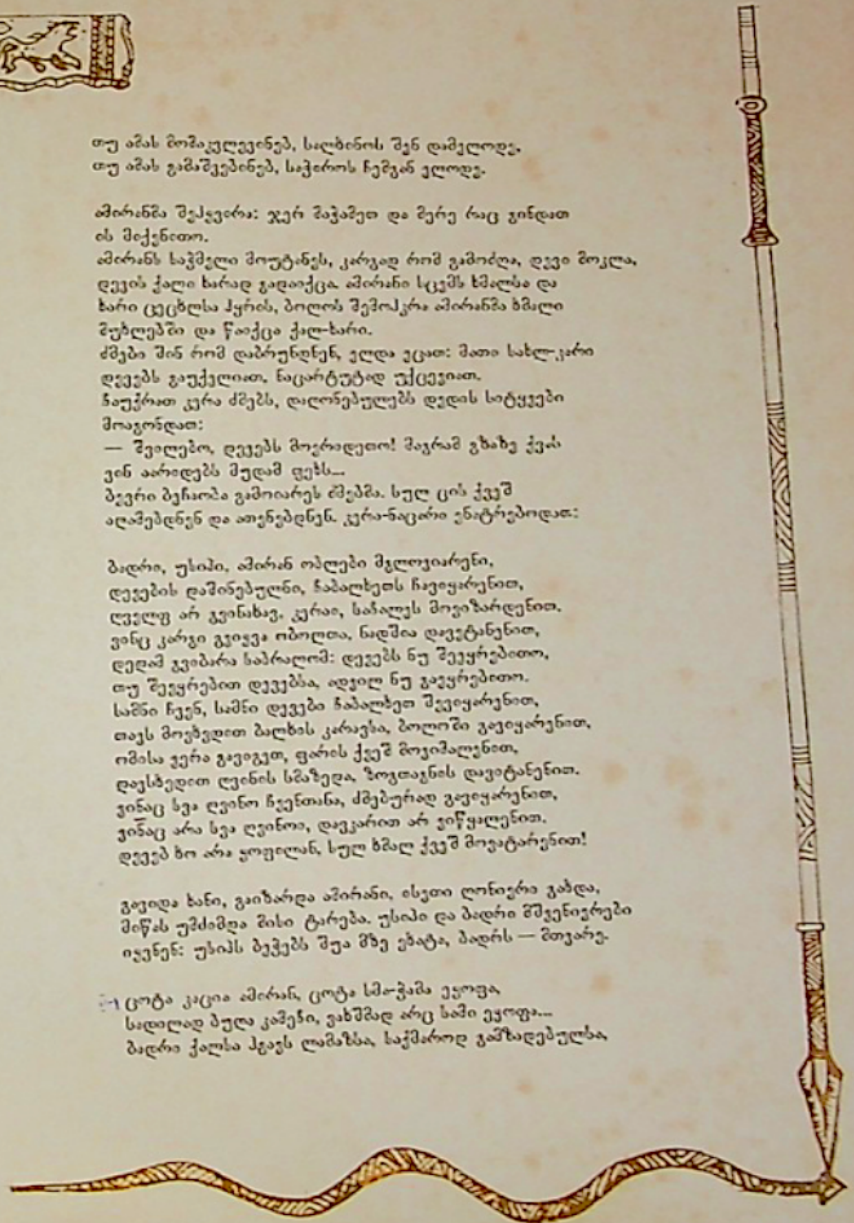 თუ ამას მომაკვლევინებ, სალხინოს შენ დამელოდე,
თუ ამას გამაშვებინებ, საჭიროს ჩემგან ელოდე.
ამირანმა შეჰყვირა: ჯერ მაჭამეთ და მერე რაც გინდათ
ის მიქენითო.
ამირანს საჭმელი მოუტანეს, კარგად რომ გამოძღა, დევი მოკლა,
დევის ქალი ხარად გადაიქცა. ამირანი სცემს ხმალსა და
ხარი ცეცხლსა ჰყრის, ბოლოს შემოჰკრა ამირანმა ხმალი
მუხლებში და წაიქცა ქალ-ხარი.
ძმები შინ რომ დაბრუნდნენ, ელდა ეცათ: მათი სახლ-კარი
დევებს გაუქელიათ, ნაცარტუტად უქცევიათ.
ჩაუქრათ კერა ძმებს, დაღონებულებს დედის სიტყვები
მოაგონდათ:
— შვილებო, დევებს მოერიდეთო! მაგრამ გზაზე ქვას
ვინ აარიდებს მუდამ ფეხს...
ბევრი ბეჩაობა გამოიარეს ძმებმა. სულ ცის ქვეშ
აღამებდნენ და ათენებდნენ. კერა-ნაცარი ენატრებოდათ:
ბადრი, უსიპი, ამირან ობლები მგლოვიარენი,
დევების დაშინებულნი, ჩაბალხეთს ჩავიყარენით,
ღველფ არ გვინახავ, კერაი, საჩალეს მოვიზარდენით.
ვინც კარგი გვიყვა ობოლთა, ნადშია დავეტანენით,
დედამ გვიბარა საბრალომ: დევებს ნუ შეეყრებითო,
თუ შეეყრებით დევებსა, ადვილ ნუ გაეყრებითო.
სამნი ჩვენ, სამნი დევები ჩაბალხეთ შევიყარენით,
თავს მოვხვდით ბალხის კარავსა, ბოლოში გავიყარენით,
ომისა ვერა გავიგეთ, ფარის ქვეშ მოვიმალენით,
დავსხედით ღვინის სმაზედა, ზოგთაგნის დავიტანენით.
ვინაც სვა ღვინო ჩვენთანა, ძმებურად გავიყარენით,
ვინაც არა სვა ღვინოი, დავკარით არ ვიწყალენით.
დევებ ხო არა ყოფილან, სულ ხმალ ქვეშ მოვატარენით!
გავიდა ხანი, გაიზარდა ამირანი, ისეთი ღონიერი გახდა,
მიწას უმძიმდა მისი ტარება. უსიპი და ბადრი მშვენიერები
იყვნენ: უსიპს ბეჭებს შუა მზე ეხატა, ბადრს — მთვარე.
ცოტა კაცია ამირან, ცოტა სმა-ჭამა ეყოფა,
სადილად ბუღა კამეჩი, ვახშმად არც სამი ეყოფა...
ბადრი ქალსა ჰგავს ლამაზსა, საქმაროდ გამზადებულსა,